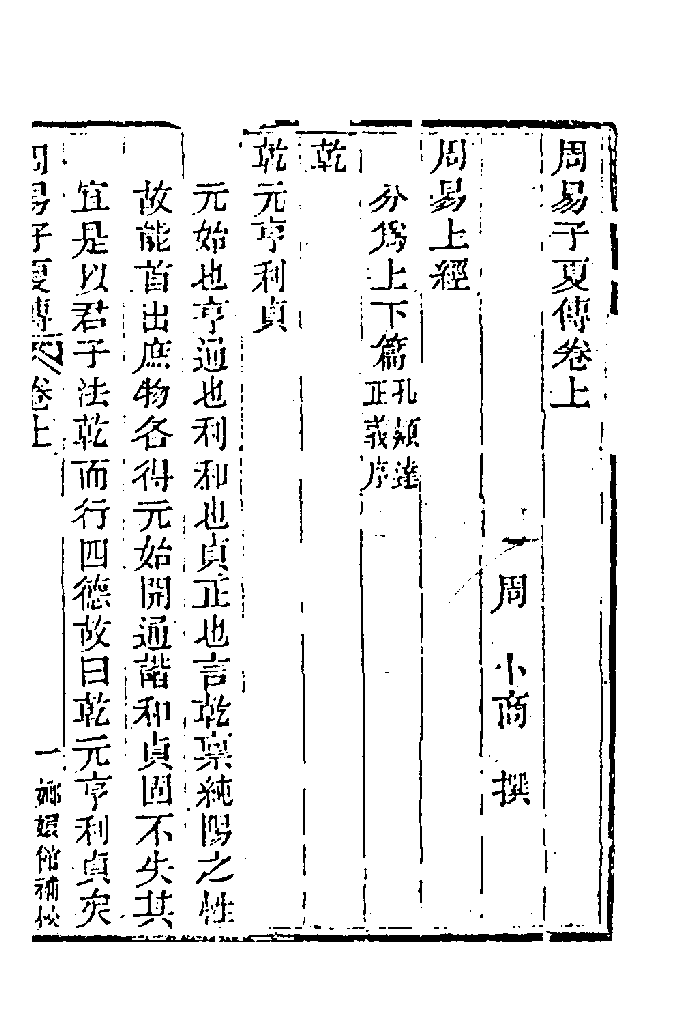 周易子夏傳卷上
周 卜商 撰
周易上經
分爲上下篇孔穎達
正義序
乾
乾元亨利貞
元始也亨通也利和也貞正也言乾稟純陽之性
故能首出庶物各得元始開通諧和貞固不失其
宜是以君子法乾而行四德故曰乾元亨利貞矣
周易子夏傳 卷上 一 嫏嬛館補校